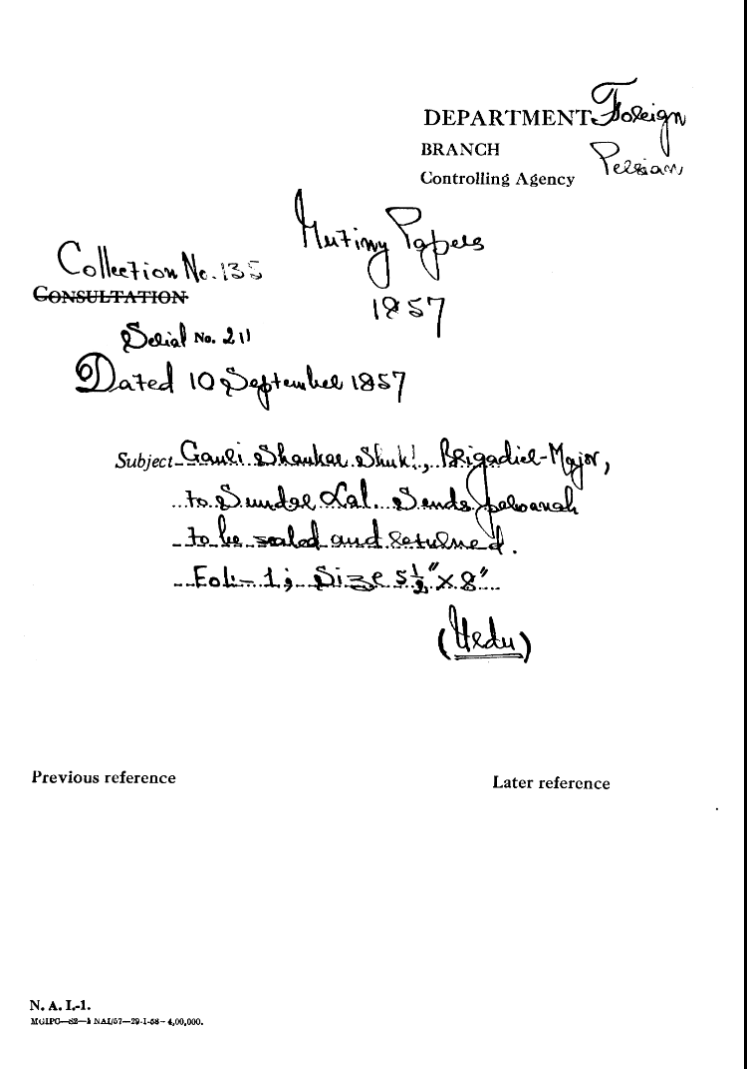 DEPARTMENT Foreign
BRANCH Persian
Controlling Agency
Mutiny Papers
1857
Collection No. 135
CONSULTATION
Serial No. 211
Dated 10 September 1857
Subject Gauri Shankar Shukl, Brigadier-Major,
to Sunder Lal. Sends parwanah
to be sealed and returned.
Fol:- 1; Size 5½" x 8"
(Urdu)
Previous reference
Later reference
N. A. I.-1.
MGIPC—S2—1 NAI/57—29-1-58—4,00,000.